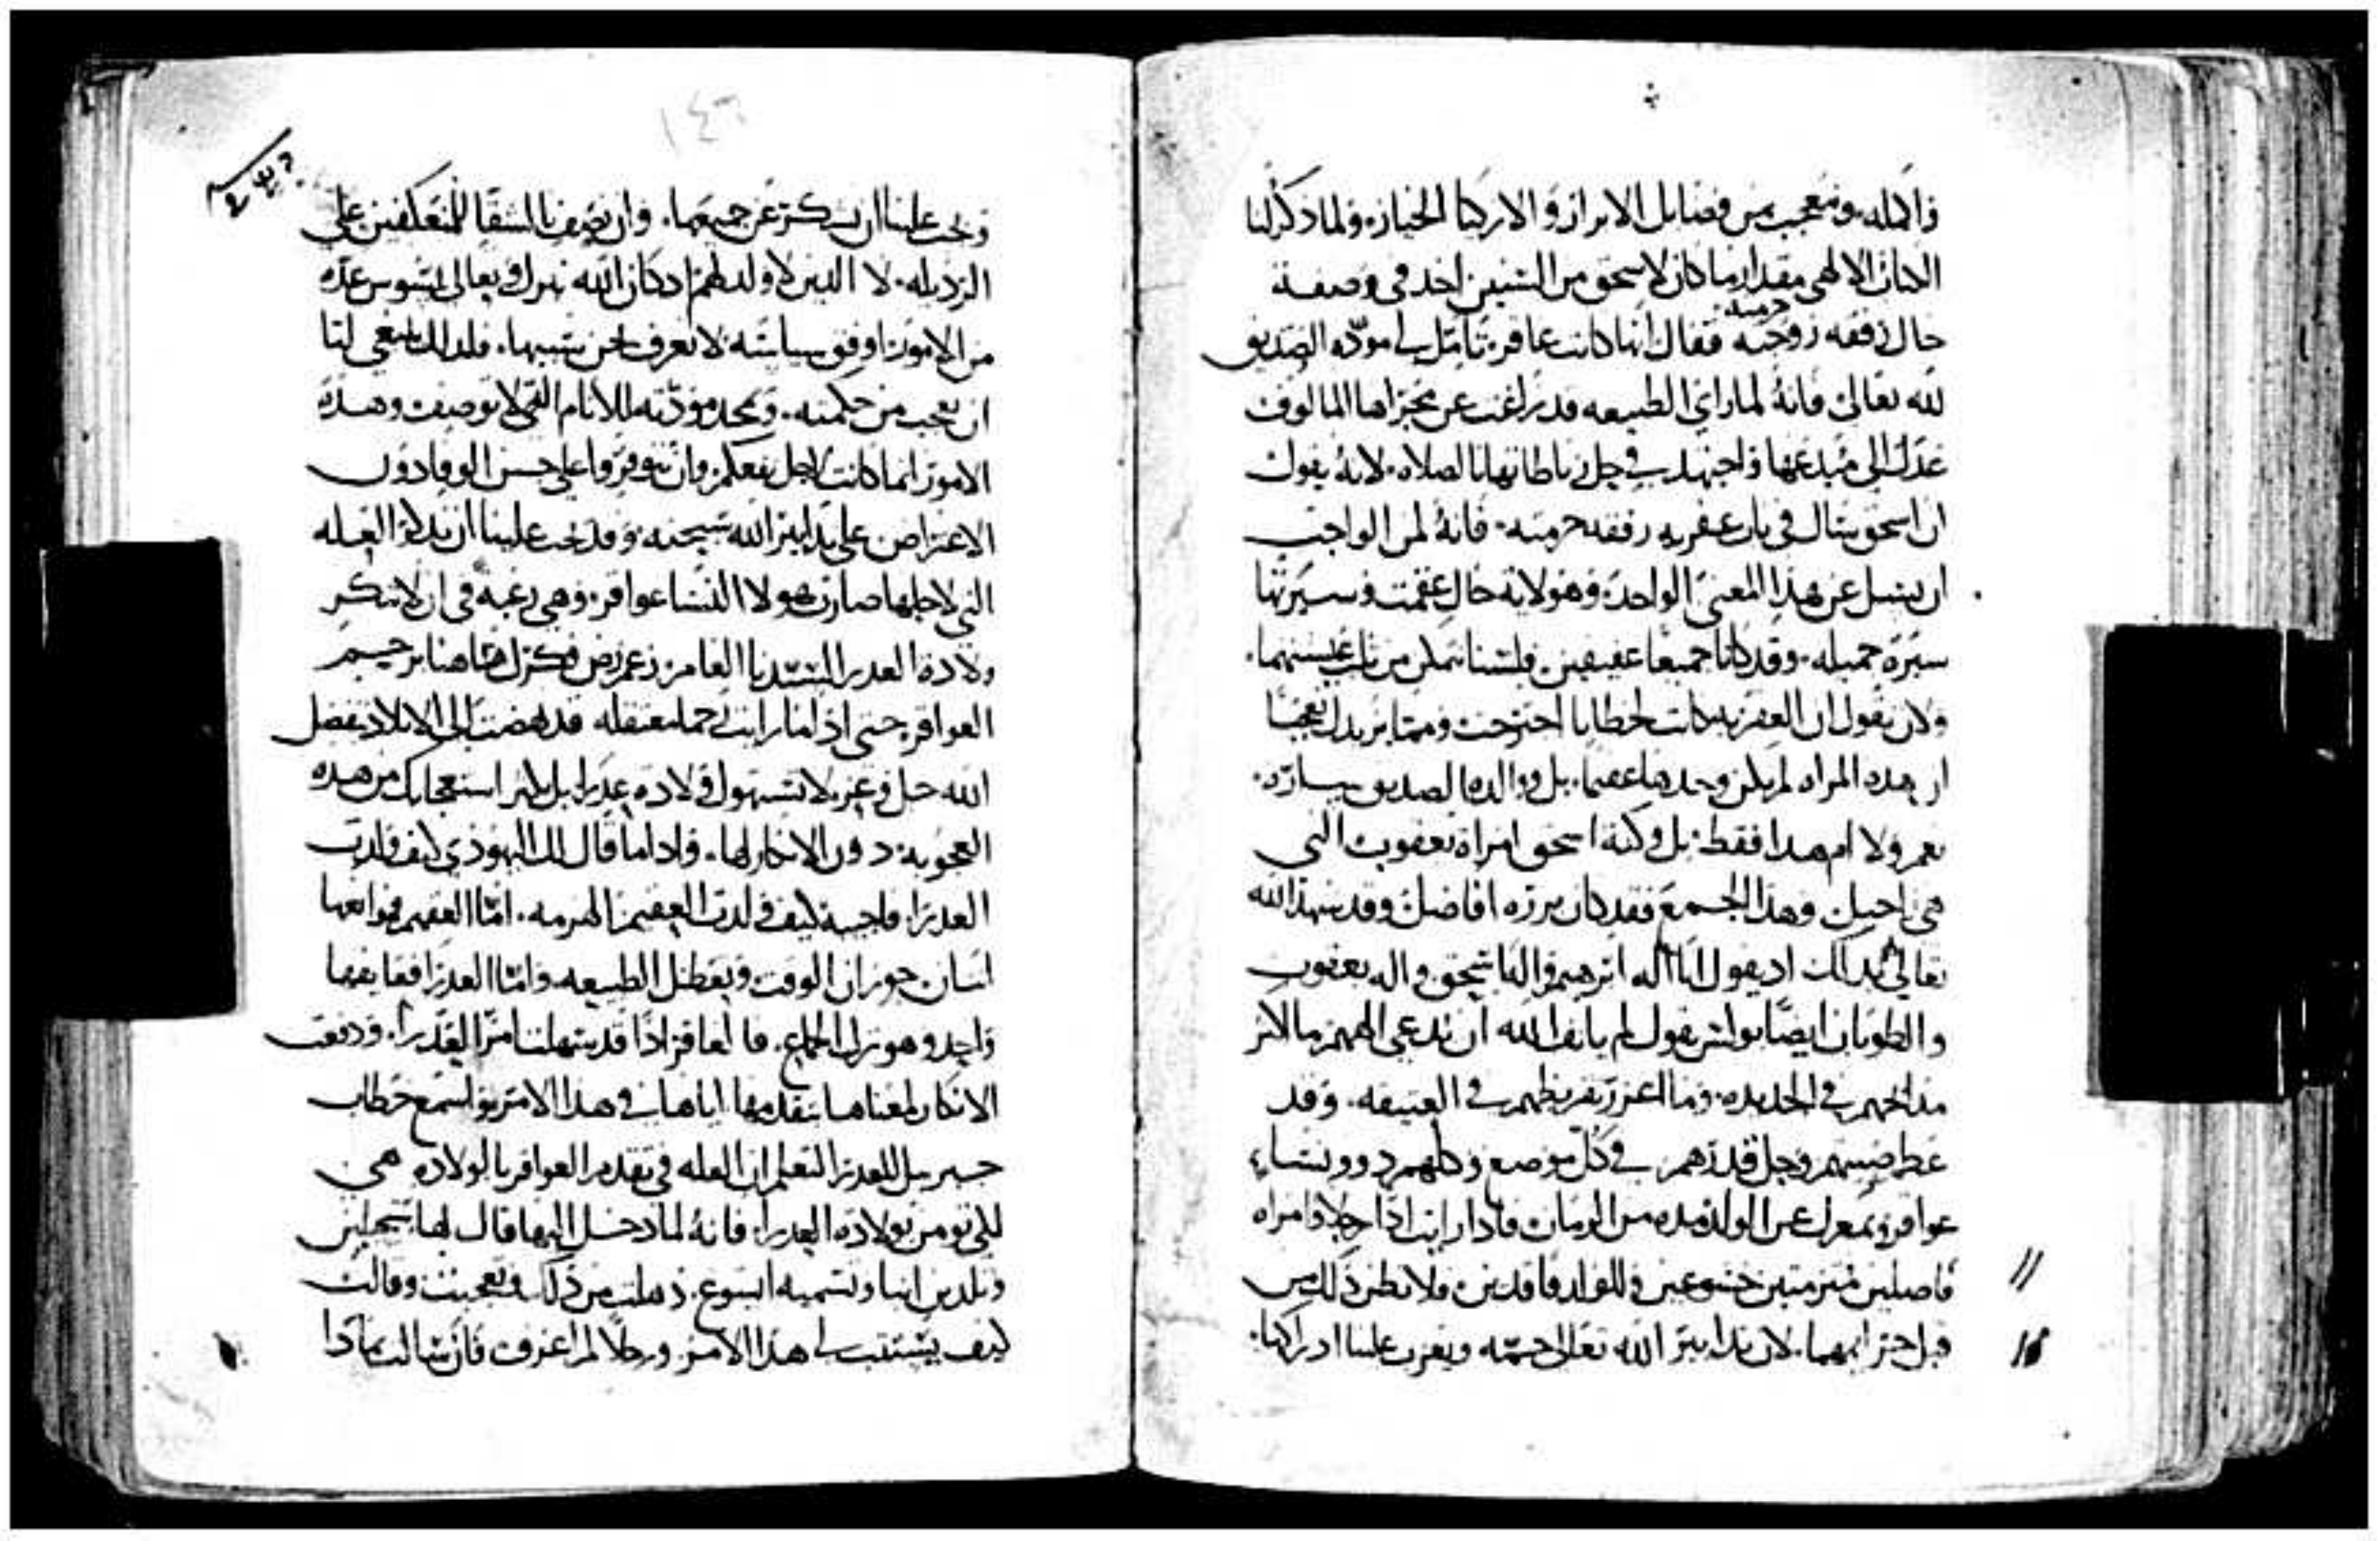 فاكمله. ونعجب من فضايل الابرار والازكيا الخيار. ولما ذكر لنا
الكتاب الالهي مقدار ما كان لاسحق من السنين اخد في وصفة
حال رفقه زوجته حرمته فقال انها كانت عاقر. تامل لي مودّه الصديق
لله تعالى فانهُ لما راى الطبيعه قد زاغت عن مجراها المالوف
عدل الى مبدعها واجتهد في حل رباطاتها بالصلاه. لانهُ يقول
ان اسحق سال في باب عقريه رفقه حرمته. فانهُ لمن الواجب
ان يسل عن هذا المعنى الواحد. وهو لايه حال عقمت وسيرتها
سيرة جميله. وقد كانا جميعًا عفيفين. فلسنا نتمكن من ثلب عيشتهما.
ولان نقول ان العقريه كانت لخطايا اجترحت ومما يزيدك تعجبًا
ان هده المراه لم تكن وحدها عقيمًا. بل ووالدة الصديق ساره.
نعم ولا ام هدا فقط. بل وكنة اسحق امراة يعقوب التي
هي راحيل وهذا الجمع فقد كان برره افاضل وقد شهد الله
تعالى بدلك اد يقول انا اله ابرهيم واله اسحق واله يعقوب
والطوبان ايضًا بولس يقول لم يانف الله ان يدعى الههم. ما اكثر
مدايحهم في الحديده. وما اغزر تقريظهم في العتيقه. وقد
عظم صيتهم وجل قدرهم في كل موضع وكلهم دوو نساءٍ
عواقر. وبمعزل عن الولد مده من الزمان فادا رايت ادًا رجلا وامراه
فاضلين متزمتين خشوعين وللولد فاقدين. فلا تظن ذلك من
قبل اجترامهما. لان تدابير الله تعالى جمّه ويعزب علينا ادراكها.
١٤٦
ويجب علينا ان نشكره عن جميعها. وان نصف بالشقا للمتعكفين على
الرذيله. لا الدين لا ولد لهم اد كان الله تبارك وتعالى يسوس عدّه
من الامور باوفق سياسه لا نعرف نحن سببها. فلدلك ينبغي لنا
ان نعجب من حكمته. ونمجد مودّته للانام التي لا توصف وهده
الامور انما كانت لاجل نفعكم. وان تتوفروا على حسن الوفا دون
الاعتراض على تدابير الله سبحنه. وقد يجب علينا ان ندكر العله
التي لاجلها صارت هولا النسا عواقر. وهي رغبةً في ان لا تنكر
ولادة العدرا لسيدنا
العواقر. حتى اذا ما رايت قد نهضت الى الايلاد بفضل
الله جل وعز. لا تستهول ولادة عدرا. بل يكثر استعجابك من هده
العجوبه. دون الانكار لها. وادا ما قال لك اليهودي كيف ولدت
العدرا. فاجبه كيف ولدت العقيم الهرمه. امّا العقيم فموانعها
اتنان جوزان الوقت وتعطيل الطبيعه. وامّا العدرا فعايقها
واحد وهو ترك الجماع. فالعاقر ادًا قد سهلت لنا امر العدرا. ودفعت
الانكار لمعناها بتقدمها اياها في هدا الامر. بو اسمع خطاب
جبريل للعدرا. لتعلم ان العله في تقدم العواقر بالولاده هي
لكي نومن بولادة العدرا. فانهُ لما دخل اليها قال لها ستحبلين
وتلدين ابنا وتسميه ايسوع. ذهلت من ذلك وتعجبت وقالت
كيف يستتب لي هدا الامر ورجلًا لم اعرف